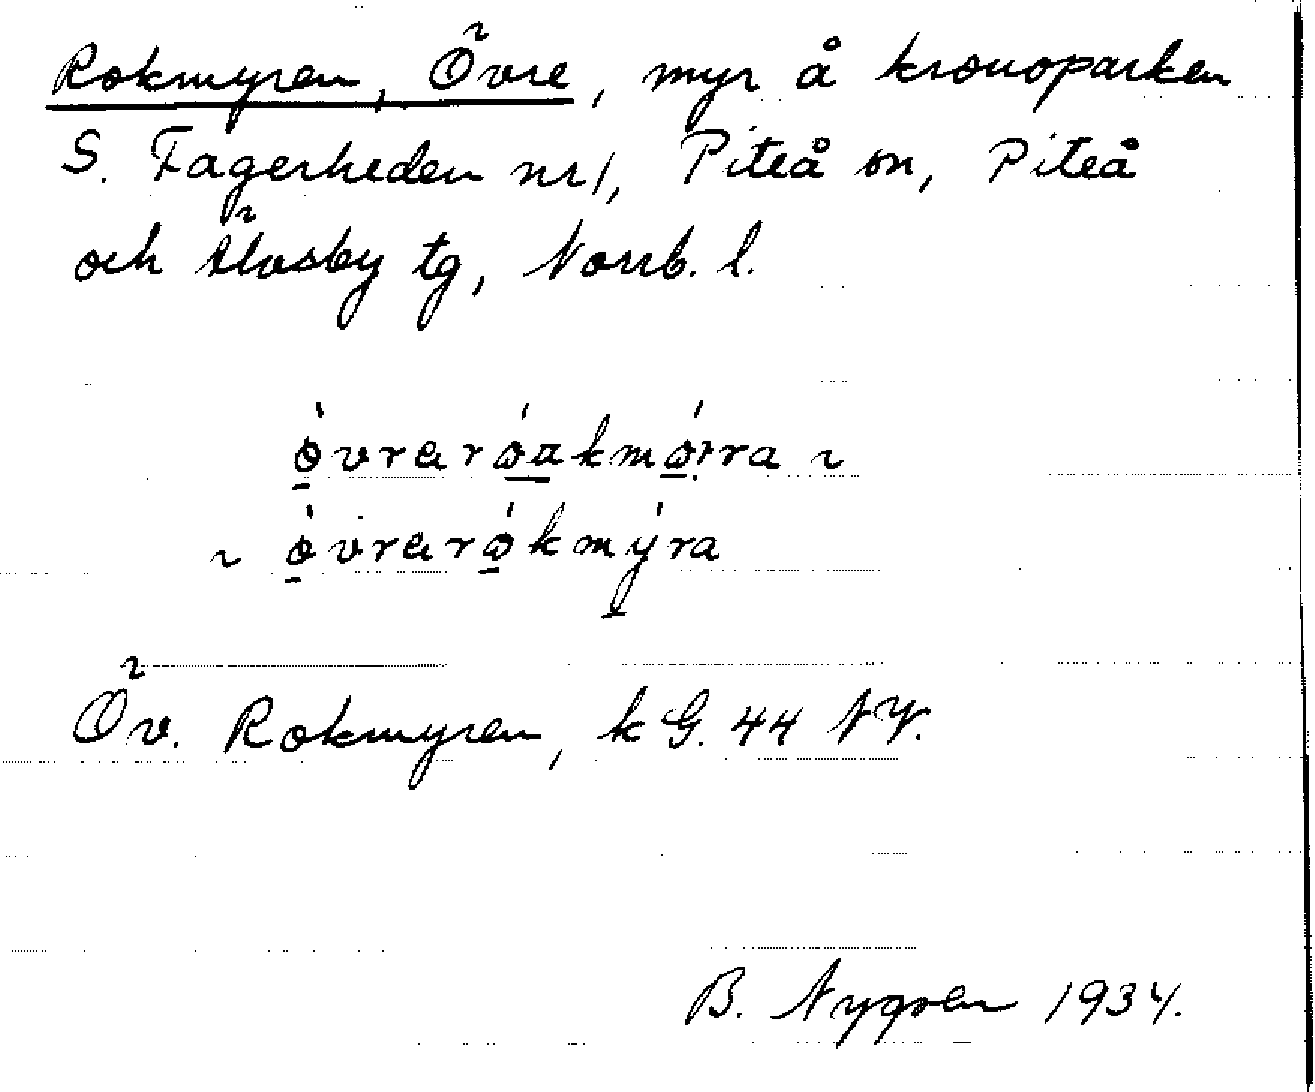 Rokmyren, Övre, myr å kronoparken
S. Fagerheden nr 1, Piteå sn, Piteå
och Älvsby tg, Norrb. l.
Öv. Rokmyren, kG. 44 NV.
B. Nygren 1934.